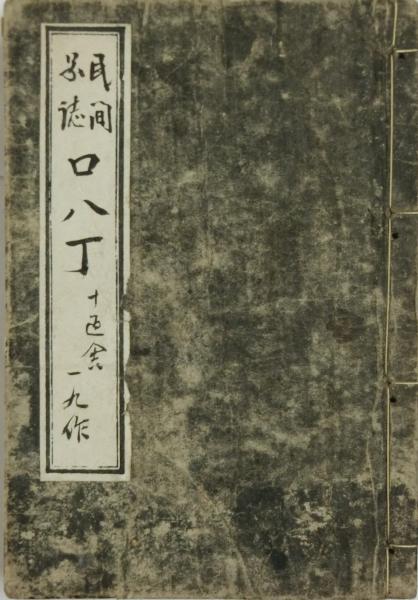 民間
誌
口八丁
十返舎一九作